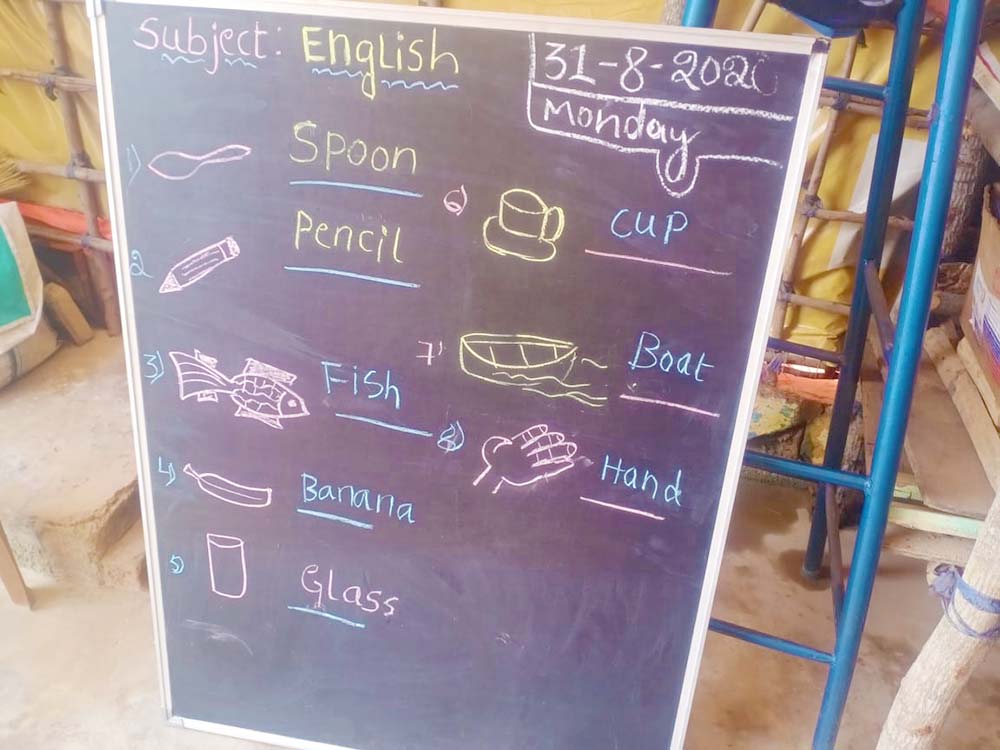 Subject: English
31-8-2020
Monday
1) Spoon
2 Pencil
3) Fish
4) Banana
5) Glass
6) Cup
7) Boat
8) Hand